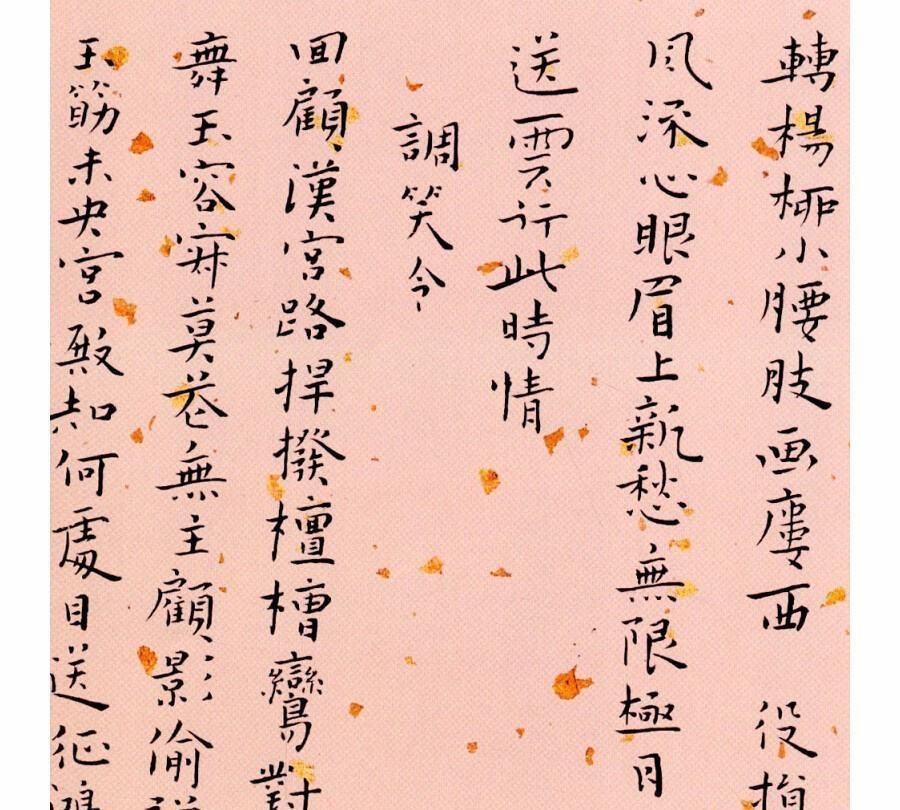 轉楊柳小腰肢画廔西 役損
風流心眼眉上新愁無限極目
送雲行此時情
調笑令
回顧漢宮路捍撥檀槽鸞對
舞玉容寂莫花無主顧影偷
玉筋未央宮殿知何處目送征鴻